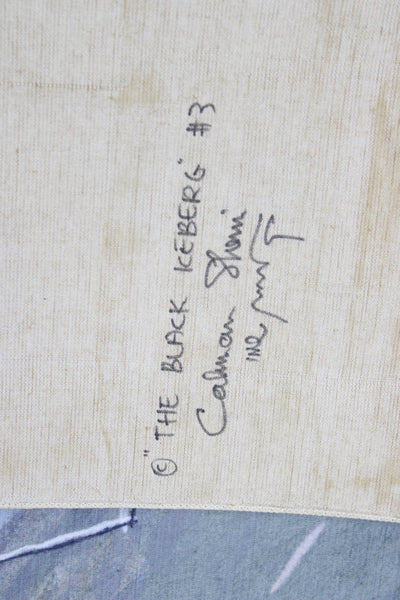 ©"THE BLACK ICEBERG" #3
Calman Shemi